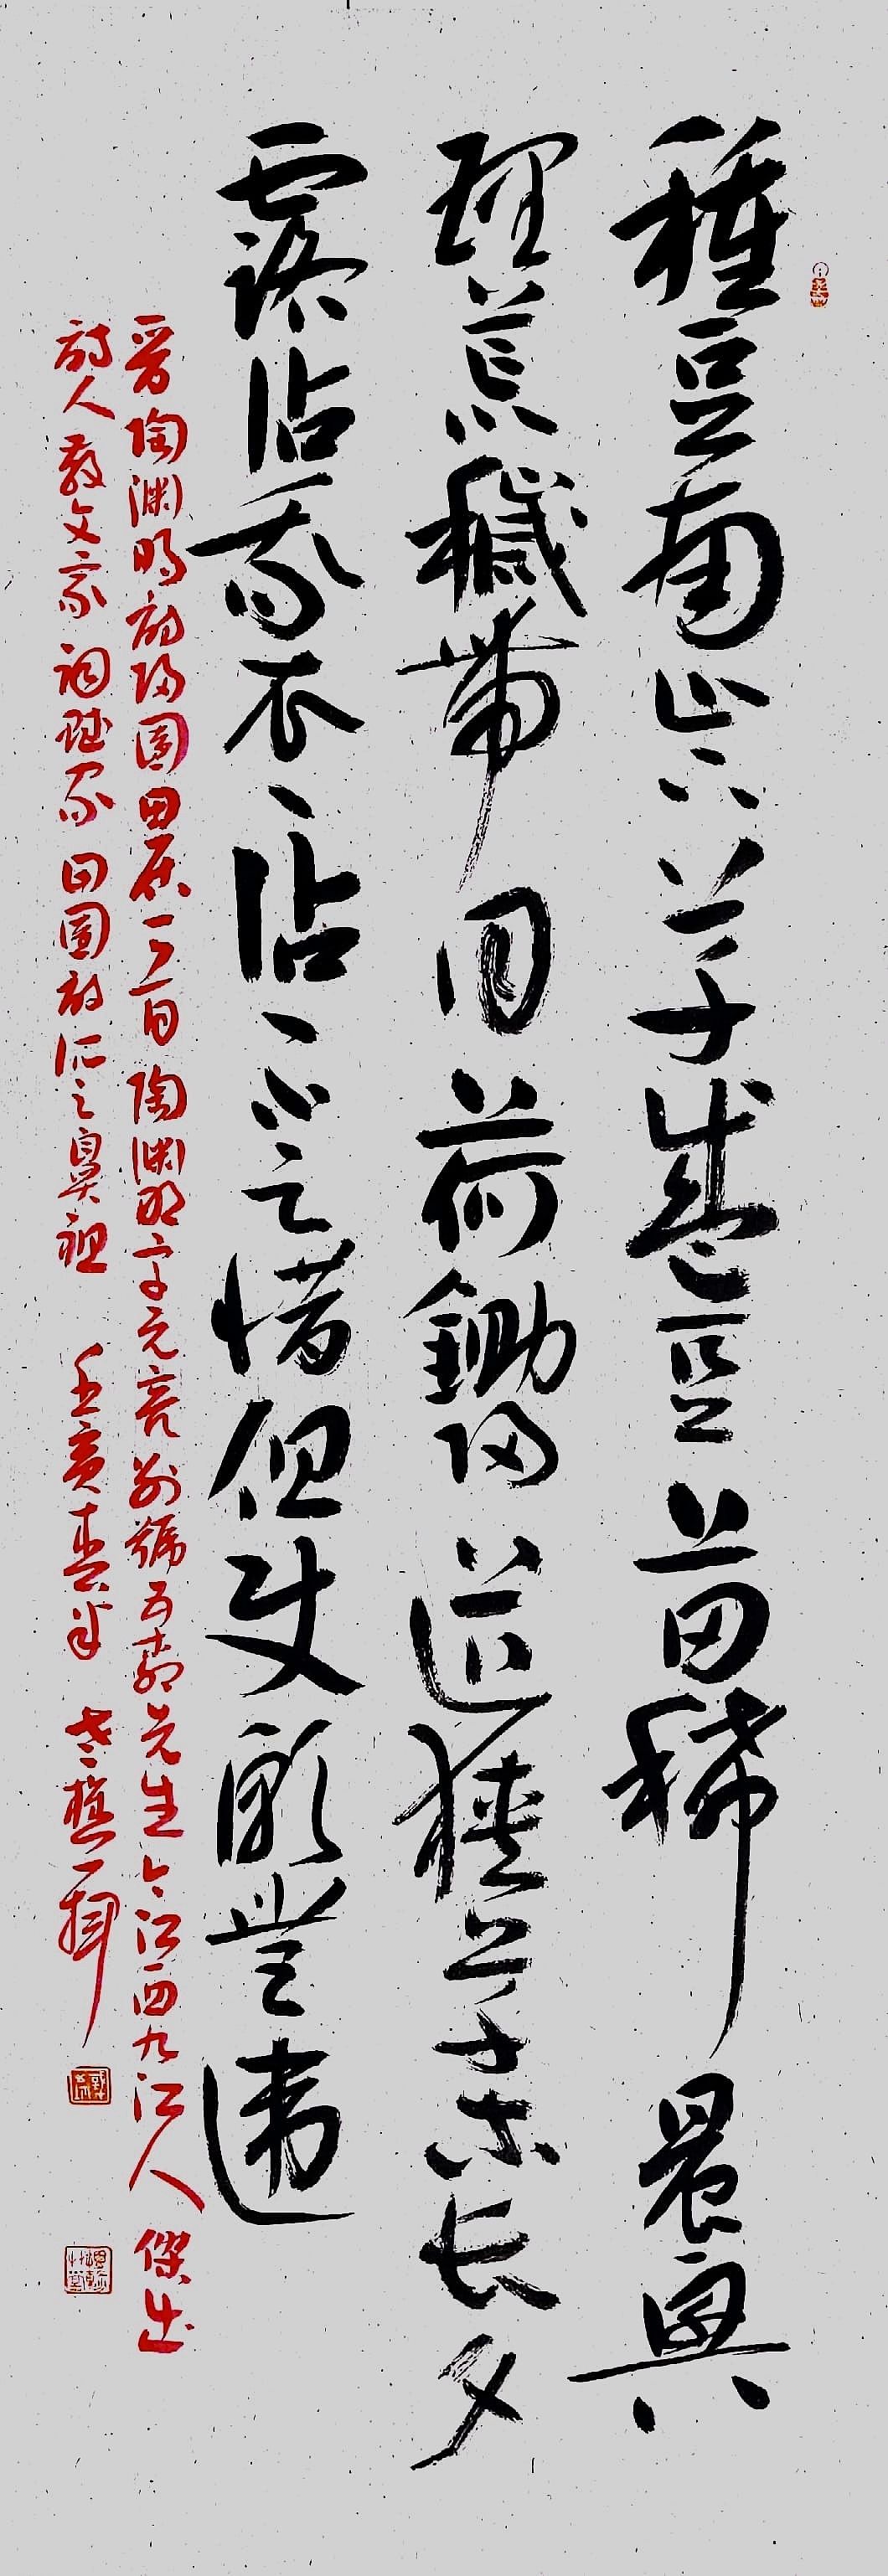 種豆南山下草盛豆苗稀晨興
理荒穢帶月荷鋤歸道狹草木長夕
露沾我衣々沾々不足惜但使願無違
晉陶淵明詩歸園田居一首陶淵明字元亮別號五柳先生今江西九江人傑出
詩人散文家詞賦家田園詩派之鼻祖 壬寅春半